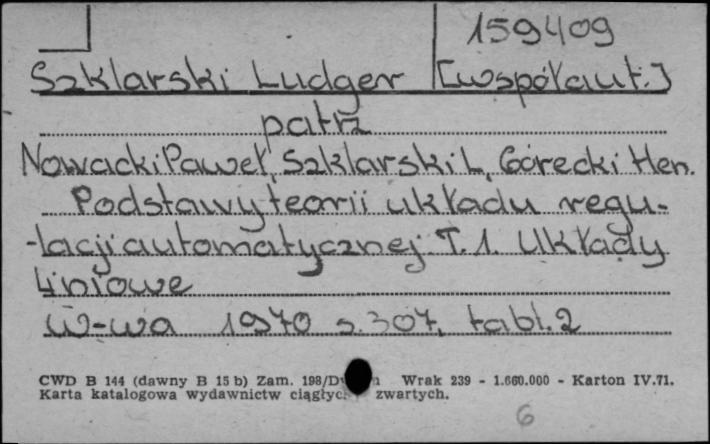 159409
Szklarski Ludger [współaut.]
patrz
Nowacki Paweł, Szklarski L, Górecki Hen.
Podstawy teorii układu regu-
-lacji automatycznej T. 1. Układy
liniowe
W-wa 1970 s. 307, tabl. 2
CWD B 144 (dawny B 15 b) Zam. 198/D Wrak 239 - 1.660.000 - Karton IV.71.
Karta katalogowa wydawnictw ciągłyc zwartych.
6